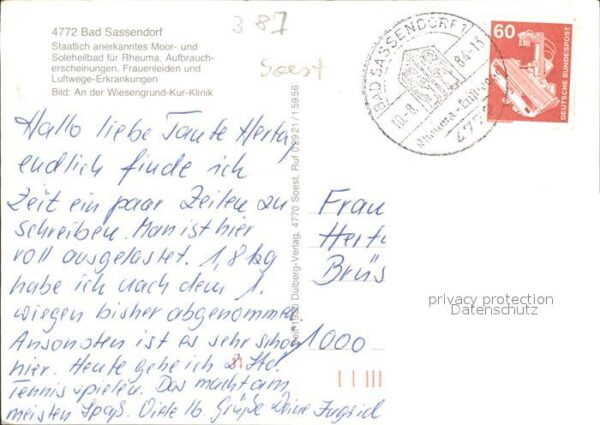 387
Soest
4772 Bad Sassendorf
Staatlich anerkanntes Moor- und
Soleheilbad für Rheuma, Aufbrauch-
erscheinungen, Frauenleiden und
Luftwege-Erkrankungen.
Bild: An der Wiesengrund-Kur-Klinik
BAD SASSENDORF 1
10.-8. 84-13
Rheuma
4772
60
DEUTSCHE BUNDESPOST
Hallo liebe Tante Herta,
endlich finde ich
Zeit ein paar Zeilen zu
schreiben. Man ist hier
voll ausgelastet. 1,8 kg
habe ich nach dem 1.
wiegen bisher abgenommen.
Ansonsten ist es sehr schön
hier. Heute gehe ich 2 Std.
Tennis spielen. Das macht am
meisten Spaß. Viele lb. Grüße Deine Ingrid
Dülberg-Verlag, 4770 Soest, Ruf 02921/15956
Frau
Hert
Brüs
1000
privacy protection
Datenschutz